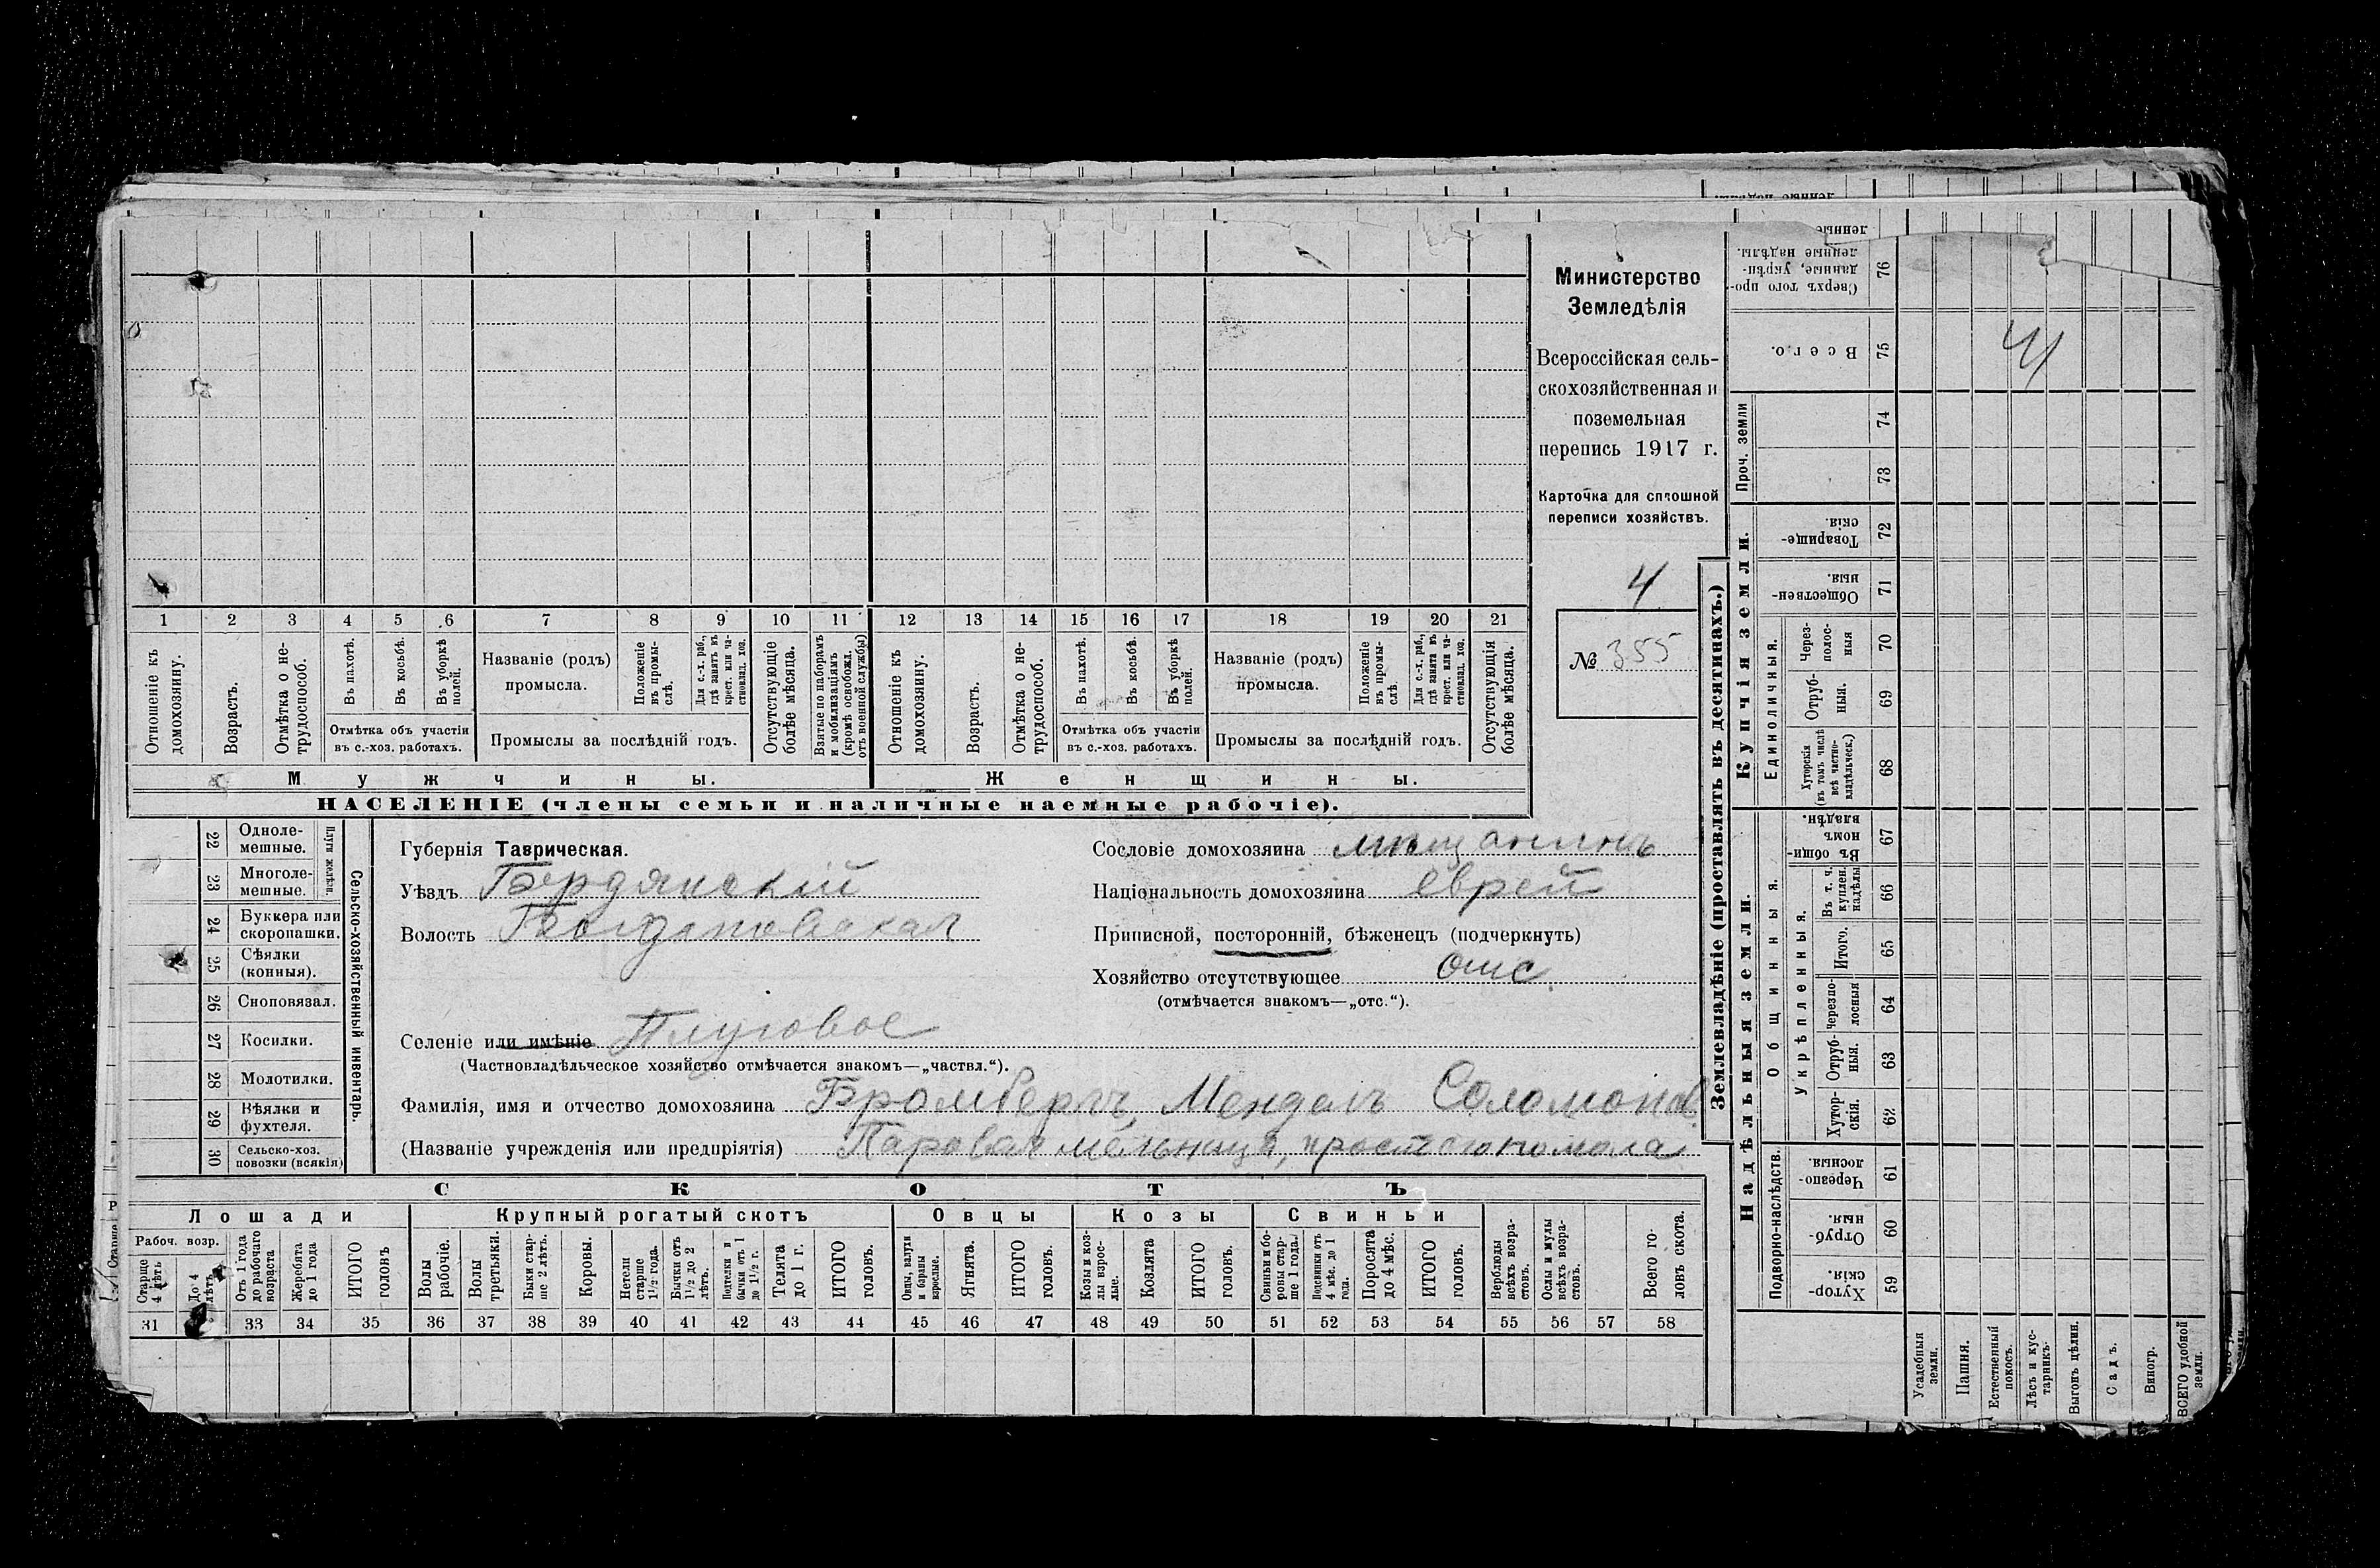 Министерство
Земледѣлія
Всероссійская сель-
скохозяйственная и
поземельная
перепись 1917 г.
Карточка для сплошной
переписи хозяйствъ.
4
№ 355
1 2 3 4 5 6 7 8 9 10 11 12 13 14 15 16 17 18 19 20 21
Отношеніе къ домохозяину.
Возрастъ.
Отмѣтка о не-трудоспособ.
Въ пахотѣ.
Въ косьбѣ.
Въ уборкѣ полей.
Отмѣтка объ участіи
въ с.-хоз. работахъ.
Названіе (родъ)
промысла.
Положеніе въ промы-слѣ.
Для с.-х. раб., гдѣ занятъ въ крест. или ча-стновлад. хоз.
Промыслы за послѣдній годъ.
Отсутствующіе болѣе мѣсяца.
Взятые по наборамъ и мобилизаціямъ (кромѣ освобожд. отъ военной службы)
Отношеніе къ домохозяину.
Возрастъ.
Отмѣтка о не-трудоспособ.
Въ пахотѣ.
Въ косьбѣ.
Въ уборкѣ полей.
Отмѣтка объ участіи
въ с.-хоз. работахъ.
Названіе (родъ)
промысла.
Положеніе въ промы-слѣ
Для с.-х. раб., гдѣ занята въ крест. или ча-стновлад. хоз.
Промыслы за послѣдній годъ.
Отсутствующія болѣе мѣсяца.
Мужчины.
Женщины.
НАСЕЛЕНІЕ (члены семьи и наличные наемные рабочіе).
22 Одноле-мешные.
23 Многоле-мешные.
Плуги желѣзн.
24 Буккера или скоропашки.
25 Сѣялки (конныя).
26 Сноповязал.
27 Косилки.
28 Молотилки.
29 Вѣялки и фухтеля.
30 Сельско-хоз. повозки (всякія)
Сельско-хозяйственный инвентарь.
Губернія Таврическая.
Уѣздъ Бердянскій
Волость
Селеніе или имѣніе Плуговое
(Частновладѣльческое хозяйство отмѣчается знакомъ—„частвл.“).
Сословіе домохозяина мѣщанинъ
Національность домохозяина еврей
Приписной, посторонній, бѣженецъ (подчеркнуть)
Хозяйство отсутствующее отс.
(отмѣчается знакомъ—„отс.“).
Фамилія, имя и отчество домохозяина Бромбергъ, Мендель Соломонов
(Названіе учрежденія или предпріятія) Паровая мельница, простого помола
СКОТЪ
Лошади
Крупный рогатый скотъ
Овцы
Козы
Свиньи
Рабоч. возр.
Старше 4 лѣтъ
До 4 лѣтъ
Отъ 1 года до рабочаго возраста
Жеребята до 1 года
ИТОГО головъ
Волы рабочіе.
Волы третьяки.
Быки стар-ше 2 лѣтъ.
Коровы.
Нетели старше 1½ года.
Бычки отъ 1½ до 2 лѣтъ.
Подтелки и бычки отъ 1 до 1½ г.
Телята до 1 г.
ИТОГО головъ.
Овцы, валухи и бараны взрослые.
Ягнята.
ИТОГО головъ.
Козы и коз-лы взрос-лые.
Козлята
ИТОГО головъ.
Свиньи и бо-ровы стар-ше 1 года.
Подсвинки отъ 4 мѣс. до 1 года.
Поросята до 4 мѣс.
ИТОГО головъ.
Верблюды всѣхъ возра-стовъ.
Ослы и мулы всѣхъ возра-стовъ.
Всего го-ловъ скота.
31 33 34 35 36 37 38 39 40 41 42 43 44 45 46 47 48 49 50 51 52 53 54 55 56 57 58
Землевладѣніе (проставлять въ десятинахъ.)
Сверхъ того про-данные, укрѣп-ленные надѣлы. 76
Всего. 75
74
73
Проч. земли
Купчія земли.
Товарище-скія. 72
Обществен-ныя. 71
Единоличныя.
Через-полос-ныя 70
Отруб-ныя. 69
Хуторскія (въ томъ числѣ всѣ частно-владѣльческ.) 68
Надѣльныя земли.
Общинныя.
Въ общи-номъ владѣн. 67
Укрѣпленныя.
Въ т. ч. куплен. надѣлы 66
Итого. 65
Черезпо-лосныя 64
Отруб-ныя. 63
Хутор-скія. 62
Подворно-наслѣдств.
Черезпо-лосныя. 61
Отруб-ныя. 60
Хутор-скія. 59
Усадебныя земли.
Пашня.
Естественный покосъ.
Лѣсъ и кус-тарникъ.
Выгонъ цѣлин.
Садъ.
Виногр.
ВСЕГО удобной земли.